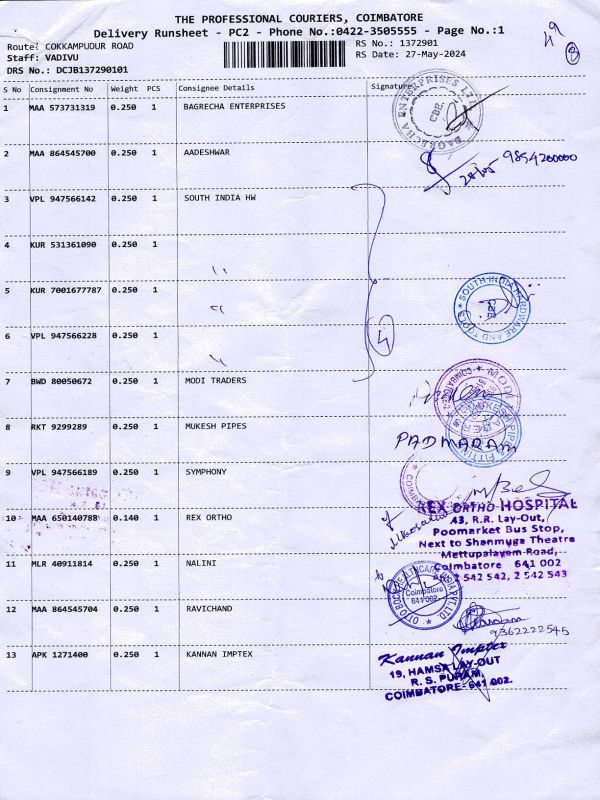 THE PROFESSIONAL COURIERS, COIMBATORE
Delivery Runsheet - PC2 - Phone No.:0422-3505555 - Page No.:1
Route: COKKAMPUDUR ROAD
Staff: VADIVU
DRS No.: DCJB137290101
RS No.: 1372901
RS Date: 27-May-2024
S No Consignment No Weight PCS Consignee Details Signature
1 MAA 573731319 0.250 1 BAGRECHA ENTERPRISES
BAGRECHA ENTERPRISES
CBE.
2 MAA 864545700 0.250 1 AADESHWAR
9894200000
3 VPL 947566142 0.250 1 SOUTH INDIA HW
4 KUR 531361090 0.250 1 "
5 KUR 7001677787 0.250 1 "
SOUTH INDIA HARDWARE AND TOOLS
6 VPL 947566228 0.250 1 "
7 BWD 80050672 0.250 1 MODI TRADERS
MODI
8 RKT 9299289 0.250 1 MUKESH PIPES
PADMARAM
9 VPL 947566189 0.250 1 SYMPHONY
10 MAA 650140788 0.140 1 REX ORTHO
REX ORTHO HOSPITAL
43, R.R. Lay-Out,
Poomarket Bus Stop,
Next to Shanmuga Theatre
Mettupalayam Road,
Coimbatore 641 002
2 542 542, 2 542 543
11 MLR 40911814 0.250 1 NALINI
OTTOBOCK HEALTHCARE INDIA PVT. LTD.
Coimbatore
641 002
12 MAA 864545704 0.250 1 RAVICHAND
9362222545
13 APK 1271400 0.250 1 KANNAN IMPTEX
Kannan Imptex
19, HAMSA LAY-OUT
R. S. PURAM,
COIMBATORE- 641 002.